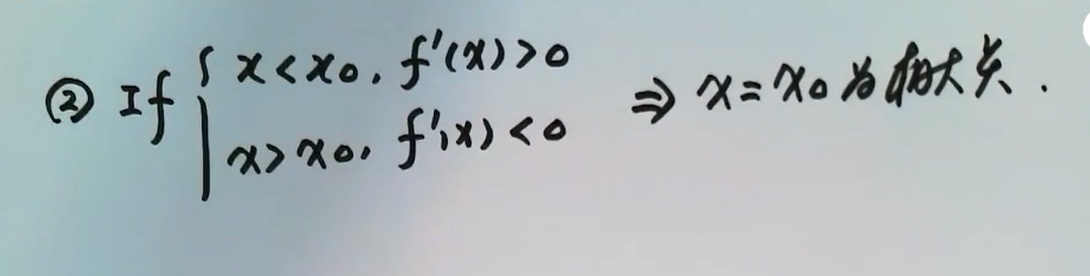 ② If { x < x₀, f'(x) > 0
x > x₀, f'(x) < 0
⇒ x = x₀ 为极大点.